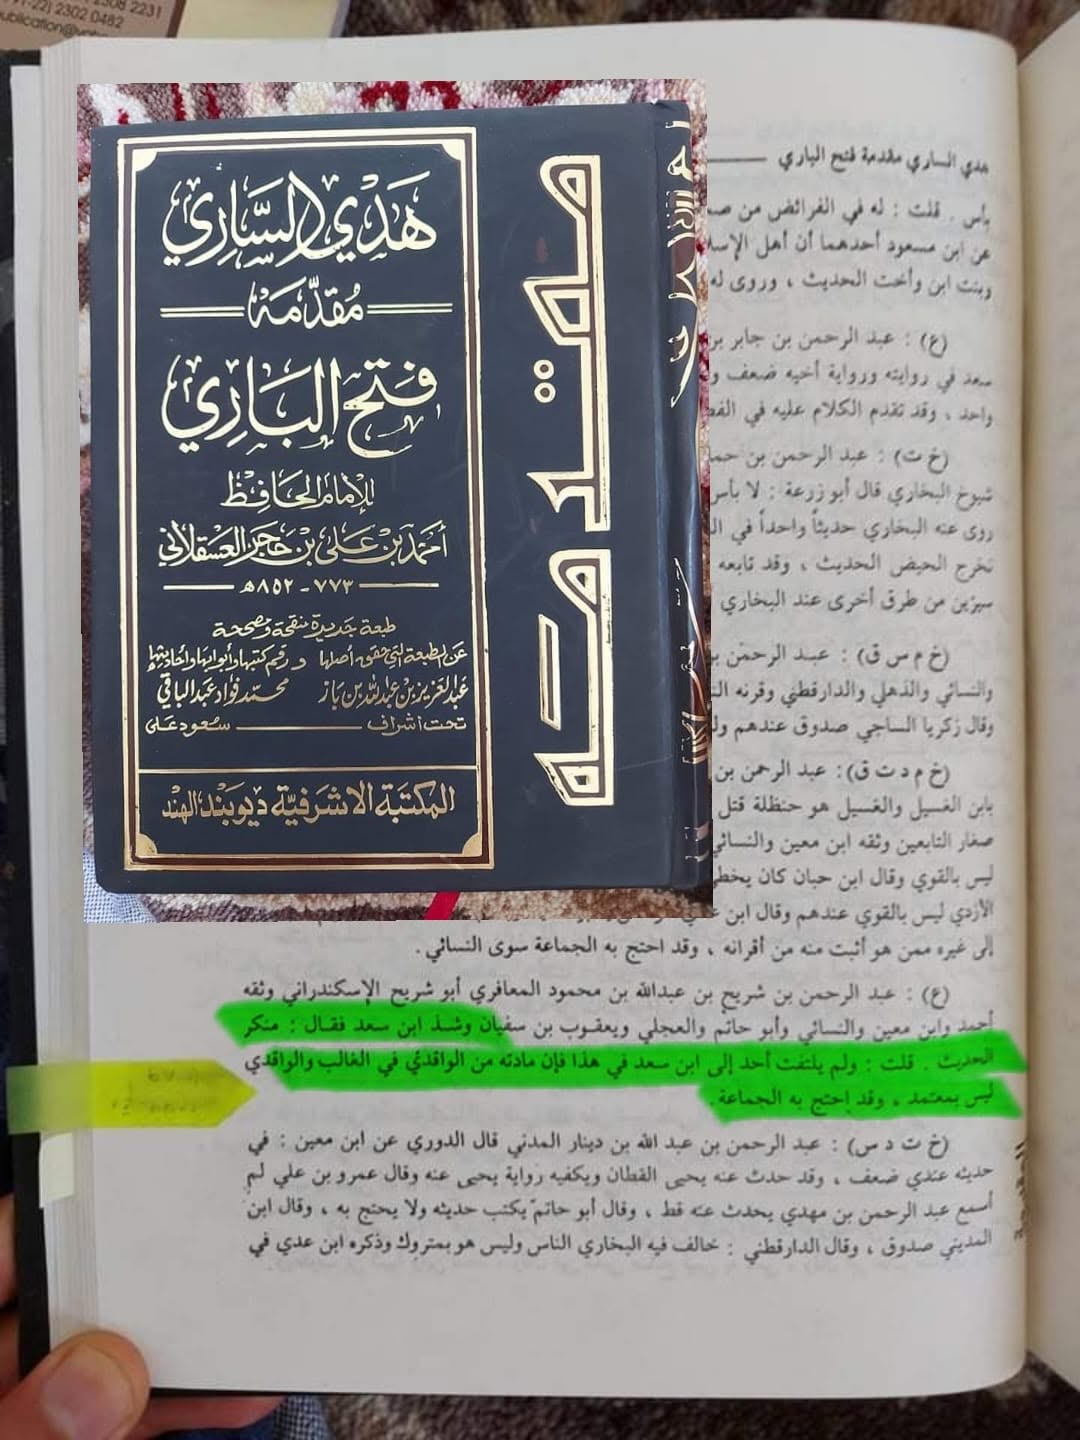 2308 2231
91-22) 2302 0482
هَدْيُ السَّارِي
مُقَدِّمَة
فَتْحِ البَارِي
للإمام الحَافِظ
أحمد بن علي بن حجر العسقلاني
٧٧٣ - ٨٥٢ هـ
طبعة جديدة منقحة ومصححة
عن الطبعة التي حقق أصلها
عبد العزيز بن عبد الله بن باز
ورقم كتبها وأبوابها وأحاديثها
محمد فؤاد عبد الباقي
تحت اشراف سعود على
المكتبة الاشرفية ديوبند، الهند
مقدمه
هدي الساري مقدمة فتح الباري
بأس . قلت : له في الفرائض من
عن ابن مسعود أحدهما أن أهل
وبنت ابن وأخت الحديث ، وروى له
(ع) : عبد الرحمن بن جابر
سعد في روايته ورواية أخيه ضعف
واحد ، وقد تقدم الكلام عليه في
(خ ت) : عبد الرحمن بن
شيوخ البخاري قال أبو زرعة : لا بأس
روى عنه البخاري حديثاً واحداً في
تخرج الحيض الحديث ، وقد تابعه
سيرين من طرق أخرى عند البخاري
(خ م س ق) : عبد الرحمن
والنسائي والذهلي والدارقطني وقرنه
وقال زكريا الساجي صدوق عندهم
(خ م د ت ق) : عبد الرحمن بن
بابن الغسيل والغسيل هو حنظلة قتل
صغار التابعين وثقه ابن معين والنسائي
ليس بالقوي وقال ابن حبان كان
الأزدي ليس بالقوي عندهم وقال ابن
إلى غيره ممن هو أثبت منه من أقرانه ، وقد احتج به الجماعة سوى النسائي .
(ع) : عبد الرحمن بن شريح بن عبدالله بن محمود المعافري أبو شريح الإسكندراني وثقه
أحمد وابن معين والنسائي وأبو حاتم والعجلي ويعقوب بن سفيان وشذ ابن سعد فقال : منكر
الحديث . قلت : ولم يلتفت أحد إلى ابن سعد في هذا فإن مادته من الواقدي في الغالب والواقدي
ليس بمعتمد ، وقد احتج به الجماعة .
(خ ت د س) : عبد الرحمن بن عبد الله بن دينار المدني قال الدوري عن ابن معين : في
حديثه عندي ضعف ، وقد حدث عنه يحيى القطان ويكفيه رواية يحيى عنه وقال عمرو بن علي لم
أسمع عبد الرحمن بن مهدي يحدث عنه قط ، وقال أبو حاتم يكتب حديثه ولا يحتج به ، وقال ابن
المديني صدوق ، وقال الدارقطني : خالف فيه البخاري الناس وليس هو بمتروك وذكره ابن عدي في